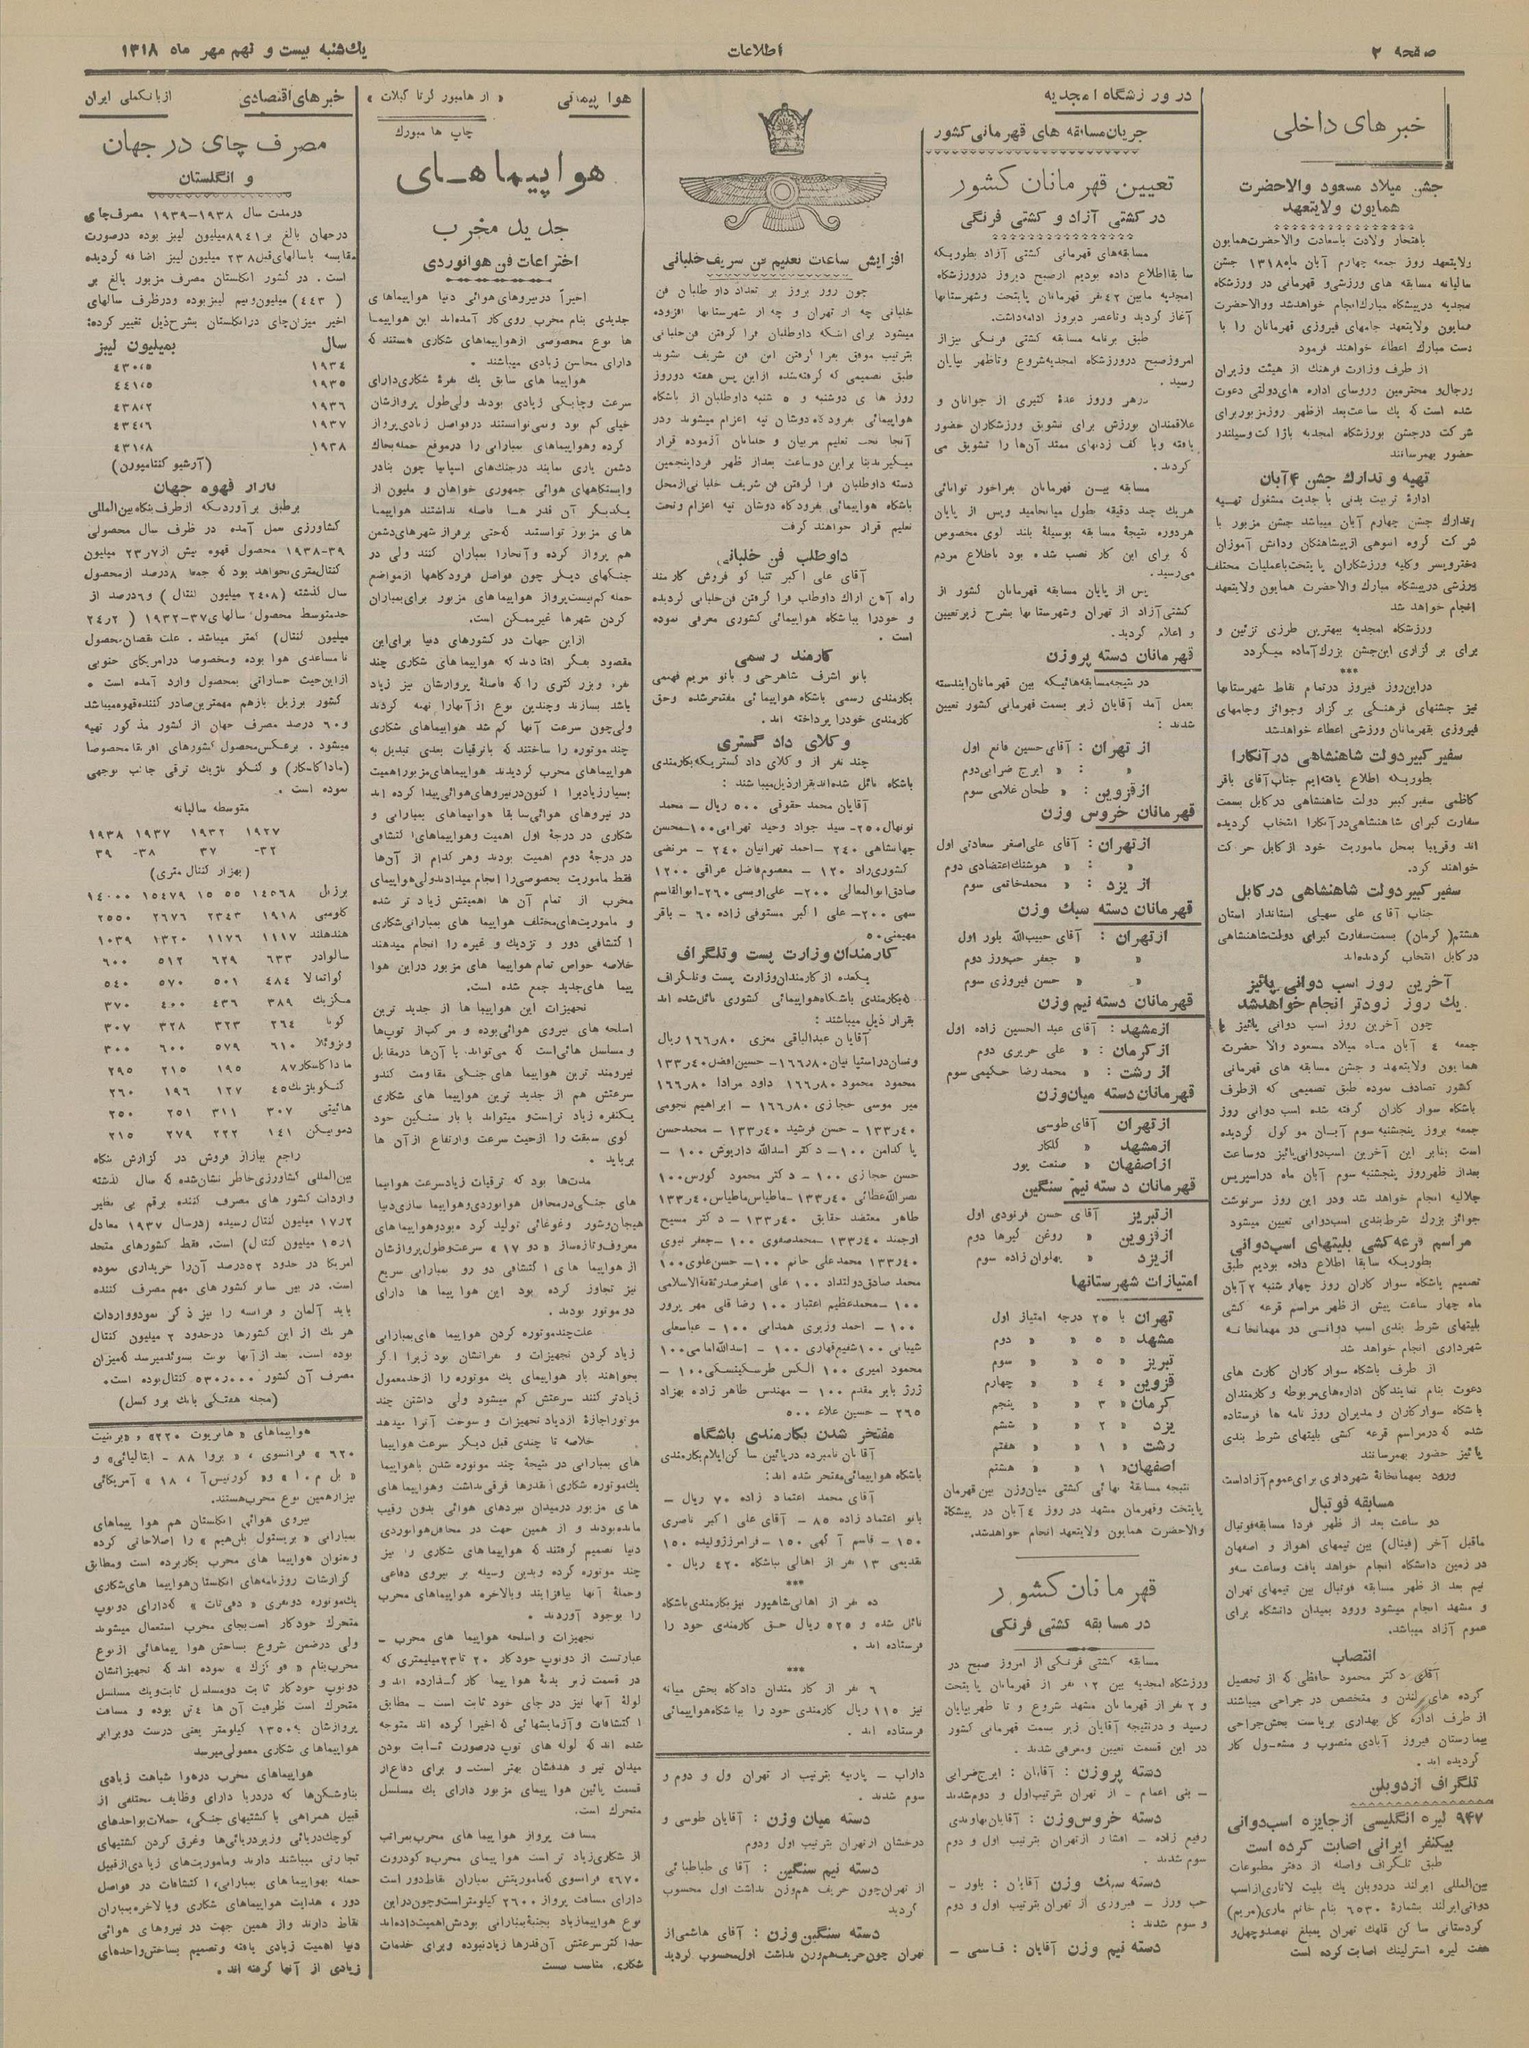 صفحه ۲
اطلاعات
یك‌شنبه بیست و نهم مهر ماه ۱۳۱۸
خبرهای داخلی
جشن میلاد مسعود والاحضرت
همایون ولایتعهد
بافتخار ولادت باسعادت والاحضرت همایون
ولایتعهد روز جمعه چهارم آبان ماه ۱۳۱۸ جشن
سالیانه مسابقه های ورزشی و قهرمانی در ورزشگاه
امجدیه در پیشگاه مبارك انجام خواهد شد و والاحضرت
همایون ولایتعهد جامهای فیروزی قهرمانان را با
دست مبارك اعطاء خواهند فرمود
از طرف وزارت فرهنك از هیئت وزیران
و رجال و محترمین و روسای اداره های دولتی دعوت
شده است که یك ساعت بعد از ظهر روز مزبور برای
شرکت در جشن بورزشگاه امجدیه با ژاکت و سیلندر
حضور بهمرسانند
تهیه و تدارك جشن ۴ آبان
ادارۀ تربیت بدنی با جدیت مشغول تهیه
و تدارك جشن چهارم آبان میباشد جشن مزبور با
شرکت گروه انبوهی از پیشاهنگان و دانش آموزان
دختر و پسر و کلیه ورزشکاران پایتخت با عملیات مختلف
ورزشی در پیشگاه مبارك والاحضرت همایون ولایتعهد
انجام خواهد شد
ورزشگاه امجدیه ببهترین طرزی تزئین و
برای برگزاری این جشن بزرك آماده میگردد
***
در این روز فیروز در تمام نقاط شهرستانها
نیز جشنهای فرهنگی برگزار و جوائز و جامهای
فیروزی بقهرمانان ورزشی اعطاء خواهد شد
سفیر کبیر دولت شاهنشاهی در آنکارا
بطوریکه اطلاع یافته‌ایم جناب آقای باقر
کاظمی سفیر کبیر دولت شاهنشاهی در کابل بسمت
سفارت کبرای شاهنشاهی در آنکارا انتخاب گردیده
اند و قریبا بمحل ماموریت خود از کابل حرکت
خواهند کرد.
سفیر کبیر دولت شاهنشاهی در کابل
جناب آقای علی سهیلی استاندار استان
هشتم (کرمان) بسمت سفارت کبرای دولت شاهنشاهی
در کابل انتخاب گردیده‌اند
آخرین روز اسب دوانی پائیز
یك روز زودتر انجام خواهد شد
چون آخرین روز اسب دوانی پائیز با
جمعه ۴ آبان ماه میلاد مسعود والا حضرت
همایون ولایتعهد و جشن مسابقه های قهرمانی
کشور تصادف نموده طبق تصمیمی که از طرف
باشگاه سوار کاران گرفته شده اسب دوانی روز
جمعه بروز پنجشنبه سوم آبان موکول گردیده
است بنابر این آخرین اسب دوانی پائیز دو ساعت
بعد از ظهر روز پنجشنبه سوم آبان ماه در اسپریس
جلالیه انجام خواهد شد و در این روز سرنوشت
جوائز بزرك شرط بندی اسب دوانی تعیین میشود
مراسم قرعه کشی بلیتهای اسب دوانی
بطوریکه سابقا اطلاع داده بودیم طبق
تصمیم باشگاه سوار کاران روز چهار شنبه ۲ آبان
ماه چهار ساعت پیش از ظهر مراسم قرعه کشی
بلیتهای شرط بندی اسب دوانی در مهمانخانه
شهرداری انجام خواهد شد
از طرف باشگاه سوار کاران کارت های
دعوت بنام نمایندگان اداره‌های مربوطه و کارمندان
باشگاه سوار کاران و مدیران روز نامه ها فرستاده
شده که در مراسم قرعه کشی بلیتهای شرط بندی
پائیز حضور بهمرسانند
ورود بمهمانخانۀ شهرداری برای عموم آزاد است
مسابقه فوتبال
دو ساعت بعد از ظهر فردا مسابقه فوتبال
ماقبل آخر (فینال) بین تیمهای اهواز و اصفهان
در زمین دانشگاه انجام خواهد یافت و ساعت سه و
نیم بعد از ظهر مسابقه فوتبال بین تیمهای تهران
و مشهد انجام میشود ورود بمیدان دانشگاه برای
عموم آزاد میباشد.
انتصاب
آقای دکتر محمود حافظی که از تحصیل
کرده های لندن و متخصص در جراحی میباشند
از طرف اداره کل بهداری بریاست بخش جراحی
بیمارستان فیروز آبادی منصوب و مشغول کار
گردیده اند.
تلگراف از دوبلن
۹۴۷ لیره انگلیسی از جایزه اسب دوانی
بیکنفر ایرانی اصابت کرده است
طبق تلگراف واصله از دفتر مطبوعات
بین‌المللی ایرلند در دوبلن یك بلیت لاتاری از اسب
دوانی ایرلند بشمارۀ ۶۵۳۰ بنام خانم ماری (مریم)
کردستانی ساکن قلهك تهران بمبلغ نهصد و چهل و
هفت لیره استرلینك اصابت کرده است
در ورزشگاه امجدیه
جریان مسابقه های قهرمانی کشور
تعیین قهرمانان کشور
در کشتی آزاد و کشتی فرنگی
مسابقه‌های قهرمانی کشتی آزاد بطوریکه
سابقا اطلاع داده بودیم از صبح دیروز در ورزشگاه
امجدیه مابین ۴۲ نفر قهرمانان پایتخت و شهرستانها
آغاز گردید و تا عصر دیروز ادامه داشت.
طبق برنامه مسابقه کشتی فرنگی نیز از
امروز صبح در ورزشگاه امجدیه شروع و تا ظهر بپایان
رسید.
در هر دو روز عدۀ کثیری از جوانان و
علاقمندان بورزش برای تشویق ورزشکاران حضور
یافته و با کف زدنهای ممتد آن‌ها را تشویق می
کردند.
مسابقه بین قهرمانان بفراخور توانائی
هر یك چند دقیقه بطول میانجامید و پس از پایان
هر دوره نتیجۀ مسابقه بوسیلۀ بلند گوی مخصوص
که برای این کار نصب شده بود باطلاع مردم
می‌رسید.
پس از پایان مسابقه قهرمانان کشور از
کشتی آزاد از تهران و شهرستانها بشرح زیر تعیین
و اعلام گردید.
قهرمانان دسته پروزن
در نتیجه مسابقه‌هائیکه بین قهرمانان ایندسته
بعمل آمد آقایان زیر بسمت قهرمانی کشور تعیین
شدند:
از تهران : آقای حسین قانع اول
« : « ایرج ضرابی دوم
از قزوین : « طحان غلامی سوم
قهرمانان خروس وزن
از تهران : آقای علی‌اصغر سعادتی اول
« : « هوشنك اعتضادی دوم
از یزد : « محمد خاتمی سوم
قهرمانان دسته سبك وزن
از تهران : آقای حبیب‌الله بلور اول
« « جعفر حب‌ورز دوم
« « حسن فیروزی سوم
قهرمانان دسته نیم وزن
از مشهد : آقای عبد الحسین زاده اول
از کرمان : « علی حریری دوم
از رشت : « محمد رضا حکیمی سوم
قهرمانان دسته میان وزن
از تهران آقای طوسی
از مشهد : « گلکار
از اصفهان « صنعت پور
قهرمانان دسته نیم سنگین
از تبریز آقای حسن فرنودی اول
از قزوین « روغن گیرها دوم
از یزد « پهلوان زاده سوم
امتیازات شهرستانها
تهران با ۲۵ درجه امتیاز اول
مشهد « ۵ « دوم
تبریز « ۵ « سوم
قزوین « ۴ « چهارم
کرمان « ۳ « پنجم
یزد « ۲ « ششم
رشت « ۱ « هفتم
اصفهان « ۱ « هشتم
نتیجه مسابقۀ نهائی کشتی میان‌وزن بین قهرمان
پایتخت و قهرمان مشهد در روز ۴ آبان در پیشگاه
والاحضرت همایون ولایتعهد انجام خواهد شد.
قهرمانان کشور
در مسابقه کشتی فرنگی
مسابقه کشتی فرنگی از امروز صبح در
ورزشگاه امجدیه بین ۱۲ نفر از قهرمانان پایتخت
و ۲ نفر از قهرمانان مشهد شروع و تا ظهر بپایان
رسید و در نتیجه آقایان زیر بسمت قهرمانی کشور
در این قسمت تعیین و معرفی شدند.
دسته پروزن : آقایان : ایرج ضرابی
– بنی اعمام – از تهران بترتیب اول و دوم شدند
دسته خروس وزن : آقایان نهاوندی
رفیع زاده – افشار از تهران بترتیب اول و دوم
سوم شدند.
دسته سبك وزن آقایان : بلور –
حب ورز – فیروزی از تهران بترتیب اول و دوم
و سوم شدند :
دسته نیم وزن آقایان : قاسمی –
افزایش ساعات تعلیم فن شریف خلبانی
چون روز بروز بر تعداد داوطلبان فن
خلبانی چه از تهران و چه از شهرستانها افزوده
میشود برای اینکه داوطلبان فرا گرفتن فن خلبانی
بترتیب موفق بفرا گرفتن این فن شریف شوند
طبق تصمیمی که گرفته‌شده از این پس هفته دو روز
روز های دوشنبه و ۵ شنبه داوطلبان از باشگاه
هواپیمائی بفرودگاه دوشان تپه اعزام میشوند و در
آنجا تحت تعلیم مربیان و خلبانان آزموده قرار
میگیرند بنا براین دو ساعت بعد از ظهر فردا پنجمین
دسته داوطلبان فرا گرفتن فن شریف خلبانی از محل
باشگاه هواپیمائی بفرودگاه دوشان تپه اعزام و تحت
تعلیم قرار خواهند گرفت
داوطلب فن خلبانی
آقای علی اکبر تنبا کو فروش کارمند
راه آهن اراك داوطلب فرا گرفتن فن خلبانی گردیده
و خود را بباشگاه هواپیمائی کشوری معرفی نموده
است.
کارمند رسمی
بانو اشرف شاهرخی و بانو مریم فهیمی
بکارمندی رسمی باشگاه هواپیمائی مفتخر شده و حق
کارمندی خود را پرداخته اند.
وکلای دادگستری
چند نفر از وکلای دادگستری که بکارمندی
باشگاه نائل شده‌اند بقرار ذیل میباشند :
آقایان محمد حقوقی ۵۰۰ ریال – محمد
نونهال ۲۵۰– سید جواد وحید تهرانی ۱۰۰– محسن
جهانشاهی ۲۴۰ – احمد تهرانیان ۲۴۰ – مرتضی
کشوری‌راد ۱۲۰ – معصوم فاضل عراقی ۱۲۰۰
صادق ابوالمعالی ۲۰۰– علی اویسی ۲۶۰– ابوالقاسم
سهی ۲۰۰– علی اکبر مستوفی زاده ۶۰ – باقر
مهیمنی ۵۰
کارمندان وزارت پست و تلگراف
یکعده از کارمندان وزارت پست و تلگراف
که بکارمندی باشگاه هواپیمائی کشوری نائل شده اند
بقرار ذیل میباشند :
آقایان عبدالباقی معزی ۱۶۶٫۸۰ ریال
۱۶۶٫۸۰– حسین افضل ۱۳۳٫۴۰
محمود محمود ۱۶۶٫۸۰ داود مرادا ۱۶۶٫۸۰
میر موسی حجازی ۱۶۶٫۸۰ – ابراهیم نجومی
۱۳۳٫۴۰ – حسن فرشید ۱۳۳٫۴۰ – محمد حسن
پاکدامن ۱۰۰ – دکتر اسدالله داریوش ۱۰۰ –
حسن حجازی ۱۰۰ – دکتر محمود کورس ۱۰۰
نصرالله عطائی ۱۳۳٫۴۰ – ماطیاس ماطیاس ۱۳۳٫۴۰
طاهر معتضد حقایق ۱۳۳٫۴۰ – دکتر مسیح
ارجمند ۱۳۳٫۴۰ – محمد صفوی ۱۰۰ – جعفر نبوی
۱۳۳٫۴۰ محمد علی حاتم ۱۰۰ – حسن علوی ۱۰۰
محمد صادق دولتداد ۱۰۰ علی اصغر صدر ثقةالاسلامی
۱۰۰ – محمد عظیم اعتبار ۱۰۰ رضا قلی مهر پرور
۱۰۰ – احمد وزیری همدانی ۱۰۰ – عباسعلی
شیبانی ۱۰۰ شفیع قهاری ۱۰۰ – اسدالله امامی ۱۰۰
محمود امیری ۱۰۰ الکس طرسکینسکی ۱۰۰ –
ژرژ بابر مقدم ۱۰۰ – مهندس طاهر زاده بهزاد
۲۶۵ – حسین علاء ۵۰۰
مفتخر شدن بکارمندی باشگاه
آقایان نامبرده در پائین ساکن ایلام بکارمندی
باشگاه هواپیمائی مفتخر شده اند:
آقای محمد اعتماد زاده ۷۰ ریال –
بانو اعتماد زاده ۸۵ – آقای علی اکبر ناصری
۱۵۰ – قاسم آگهی ۱۵۰ – فرامرز ژولیده ۱۵۰
تقدیمی ۱۳ نفر از اهالی بباشگاه ۴۲۰ ریال.
***
ده نفر از اهالی شاهپور نیز بکارمندی باشگاه
نائل شده و ۵۲۵ ریال حق کارمندی خود را
فرستاده اند.
***
۶ نفر از کارمندان دادگاه بخش میانه
نیز ۱۱۵ ریال کارمندی خود را بباشگاه هواپیمائی
فرستاده اند.
داراب – پارسه بترتیب از تهران اول و دوم و
سوم شدند.
دسته میان وزن : آقایان طوسی و
درخشان از تهران بترتیب اول و دوم
دسته نیم سنگین : آقای طباطبائی
از تهران چون حریف هم‌وزن نداشت اول محسوب
گردید
دسته سنگین وزن : آقای هاشمی از
تهران چون حریف هم‌وزن نداشت اول محسوب گردید
هواپیمائی
« از هامبورگر تا گبلات »
چاپ هامبورك
هواپیماهای
جدید مخرب
اختراعات فن هوانوردی
اخیراً در نیروهای هوائی دنیا هواپیماهای
جدیدی بنام مخرب روی کار آمده‌اند این هواپیما
ها نوع مخصوصی از هواپیماهای شکاری هستند که
دارای محاسن زیادی میباشند.
هواپیما های سابق یك نفرۀ شکاری دارای
سرعت و چابکی زیادی بودند ولی طول پروازشان
خیلی کم بود و نمی‌توانستند در فواصل زیادی پرواز
کرده و هواپیماهای بمبارانی را در موقع حمله بخاك
دشمن یاری نمایند در جنك‌های اسپانیا چون بنادر
و ایستگاههای هوائی جمهوری خواهان و ملیون از
یکدیگر آن قدر ها فاصله نداشتند هواپیما
های مزبور توانستند که حتی بر فراز شهرهای دشمن
هم پرواز کرده و آنجا را بمباران کنند ولی در
جنگهای دیگر چون فواصل فرودگاهها از مواضع
حمله کم نیست پرواز هواپیماهای مزبور برای بمباران
کردن شهرها غیر ممکن است.
از این جهات در کشورهای دنیا برای این
مقصود بفکر افتادند که هواپیماهای شکاری چند
نفره و بزرگتری را که فاصلۀ پروازشان نیز زیاد
باشد بسازند و چندین نوع از آنها را تهیه کردند
ولی چون سرعت آنها کم شد هواپیماهای شکاری
چند موتوره را ساختند که با ترقیات بعدی تبدیل به
هواپیماهای مخرب گردیدند هواپیماهای مزبور اهمیت
بسیار زیادی را اکنون در نیروهای هوائی پیدا کرده اند
در نیروهای هوائی سابقا هواپیماهای بمبارانی و
شکاری در درجۀ اول اهمیت و هواپیماهای اکتشافی
در درجۀ دوم اهمیت بودند و هر کدام از آن‌ها
فقط ماموریت بخصوصی را انجام میدادند ولی هواپیمای
مخرب از تمام آن ها اهمیتش زیاد تر شده
و ماموریت‌های مختلف هواپیما های بمبارانی شکاری
اکتشافی دور و نزدیك و غیره را انجام میدهند
خلاصه خواص تمام هواپیما های مزبور در این هوا
پیما های جدید جمع شده است.
تجهیزات این هواپیما ها از جدید ترین
اسلحه های نیروی هوائی بوده و مرکب از توپ‌ها
و مسلسل هائی است که می‌تواند با آن‌ها در مقابل
نیرومند ترین هواپیما های جنگی مقاومت کند و
سرعتش هم از جدید ترین هواپیما های شکاری
یکنفره زیاد تر است و میتواند با بار سنگین خود
گوی سبقت را از حیث سرعت و ارتفاع از آن ها
برباید.
مدت‌ها بود که ترقیات زیاد سرعت هواپیما
های جنگی در محافل هوانوردی و هواپیما سازی دنیا
هیجان و شور و غوغائی تولید کرده بود و هواپیماهای
معروف و تازه ساز « دو ۱۷ » سرعت و طول پروازشان
از هواپیما های اکتشافی دو رو بمبارانی سریع
نیز تجاوز کرده بود این هواپیما ها دارای
دو موتور بودند.
علت چند موتوره کردن هواپیما های بمبارانی
زیاد کردن تجهیزات و نفراتشان بود زیرا اگر
بخواهند بار هواپیمای یك موتوره را از حد معمول
زیادتر کنند سرعتش کم میشود ولی داشتن چند
موتور اجازۀ ازدیاد تجهیزات و سوخت آنرا میدهد
خلاصه تا چندی قبل دیگر سرعت هواپیما
های بمبارانی در نتیجۀ چند موتوره شدن با هواپیما
یك موتوره شکاری آنقدرها فرقی نداشت و هواپیماهای
های مزبور در میدان نبردهای هوائی بدون رقیب
مانده بودند و از همین جهت در محافل هوانوردی
دنیا تصمیم گرفتند که هواپیما های شکاری را نیز
چند موتوره کرده و بدین وسیله بر نیروی دفاعی
و حملۀ آنها بیافزایند و بالاخره هواپیماهای مخرب
را بوجود آوردند.
تجهیزات و اسلحه هواپیما های مخرب –
عبارتست از دو توپ خود کار ۲۰ تا ۲۳ میلیمتری که
در قسمت زیر بدنۀ هواپیما کار گذارده اند و
لولۀ آنها نیز در جای خود ثابت است – مطابق
اکتشافات و آزمایشهائی که اخیرا کرده اند متوجه
شده اند که لوله های توپ در صورت ثابت بودن
میدان تیر و هدفشان بهتر است – و برای دفاع از
قسمت پائین هواپیمای مزبور دارای یك مسلسل
متحرك است.
مسافت پرواز هواپیما های مخرب بمراتب
از شکاری زیاد تر است هواپیمای مخرب « کودروت
۶۷۰» فرانسوی که ماموریتش بمباران نقاط دور است
دارای مسافت پرواز ۲۶۰۰ کیلومتر است و چون در این
نوع هواپیما زیاد بجنبۀ بمبارانی بودنش اهمیت داده‌اند
حد اکثر سرعتش آن قدرها زیاد نبوده و برای خدمات
شکاری مناسب نیست
خبرهای اقتصادی
از بانك ملی ایران
مصرف چای در جهان
و انگلستان
در مدت سال ۱۹۳۸–۱۹۳۹ مصرف چای
در جهان بالغ بر ۸۹۴۱ میلیون لیبز بوده در صورت
مقایسه با سالهای قبل ۲۳۸ میلیون لیبز اضافه گردیده
است. در کشور انگلستان مصرف مزبور بالغ بر
(۴۴۳) میلیون و نیم لیبز بوده و در ظرف سالهای
اخیر میزان چای در انگلستان بشرح ذیل تغییر کرده:
سال بمیلیون لیبز
۱۹۳۴ ۴۳۰٫۵
۱۹۳۵ ۴۴۱٫۵
۱۹۳۶ ۴۳۸٫۲
۱۹۳۷ ۴۳۴٫۶
۱۹۳۸ ۴۳۱٫۸
(آرشیو کنتامپورن)
بازار قهوه جهان
بر طبق برآوردیکه از طرف بنگاه بین‌المللی
کشاورزی بعمل آمده در ظرف سال محصولی
۱۹۳۸–۳۹ محصول قهوه بیش از ۲۳٫۷ میلیون
کنتال متری نخواهد بود که جمعا ۸ درصد از محصول
سال گذشته (۲۴۰۸ میلیون کنتال) و ۶ درصد از
حد متوسط محصول سالهای ۳۷–۱۹۳۲ (۲۴٫۲
میلیون کنتال) کمتر میباشد. علت نقصان محصول
نامساعدی هوا بوده و مخصوصا در امریکای جنوبی
از این حیث خساراتی بمحصول وارد آمده است.
کشور برزیل باز هم مهمترین صادر کننده قهوه میباشد
و ۶۰ درصد مصرف جهان از کشور مذکور تهیه
میشود. برعکس محصول کشورهای افریقا مخصوصا
(ماداکاسکار) و کنگو بلژیك ترقی جالب توجهی
نموده است.
متوسطه سالیانه
۱۹۲۷ ۱۹۳۲ ۱۹۳۷ ۱۹۳۸
۳۲– ۳۷ ۳۸– ۳۹
(بهزار کنتال متری)
برزیل ۱۴۵۶۸ ۱۵۰۵۵ ۱۵۴۷۹ ۱۴۰۰۰
کلومبی ۱۹۱۸ ۲۳۴۳ ۲۶۷۶ ۲۵۵۰
هند هلند ۱۱۱۷ ۱۱۷۶ ۱۳۲۰ ۱۰۳۹
سالوادر ۶۳۳ ۶۲۹ ۵۱۲ ۶۰۰
گواتمالا ۴۸۴ ۵۰۱ ۵۷۰ ۵۴۰
مکزیك ۳۸۹ ۴۳۶ ۴۰۰ ۳۷۰
کوبا ۲۶۴ ۳۲۳ ۳۲۸ ۳۰۷
ونزوئلا ۶۱۰ ۵۷۹ ۶۰۰ ۳۰۰
ماداکاسکار ۸۷ ۱۹۵ ۲۱۵ ۲۹۵
کنگو بلژیك ۴۵ ۱۲۷ ۱۹۶ ۲۶۰
هائیتی ۳۰۷ ۳۱۱ ۲۵۱ ۲۵۰
دمونیکن ۱۴۱ ۲۲۲ ۲۷۹ ۲۱۵
راجع ببازار فروش در گزارش بنگاه
بین‌المللی کشاورزی خاطر نشان شده که سال گذشته
واردات کشور های مصرف کننده برقم بی نظیر
۱۷٫۲ میلیون کنتال رسیده (در سال ۱۹۳۷ معادل
۱۵٫۱ میلیون کنتال) است. فقط کشورهای متحد
امریکا در حدود ۵۲ درصد آن را خریداری نموده
است. در بین سایر کشور های مهم مصرف کننده
باید آلمان و فرانسه را نیز ذکر نمود و واردات
هر یك از این کشورها در حدود ۲ میلیون کنتال
بوده است. بعد از آنها نوبت بسوئد میرسد که میزان
مصرف آن کشور ۵۳۰٫۰۰۰ کنتال بوده است.
(مجله هفتگی بانك بروکسل)
هواپیماهای « هانریوت ۲۲۰» و «برنیت
۶۲۰ » فرانسوی، « بروا ۸۸ – ایتالیائی » و
« بل م ۱۰ » و « کورتیس آ، ۱۸ » آمریکائی
نیز از همین نوع مخرب هستند.
نیروی هوائی انگلستان هم هواپیمای
بمبارانی « بریستول بلن‌هیم » را اصلاحاتی کرده
و بعنوان هواپیما های مخرب بکار برده است و مطابق
گزارشات روزنامه‌های انگلستان هواپیما های شکاری
یك موتوره دو نفری « دفیانت » که دارای دو توپ
متحرك خودکار است بجای مخرب استعمال میشوند
ولی در ضمن شروع بساختن هواپیماهائی از نوع
مخرب بنام « فوکرك » نموده اند که تجهیزاتشان
دو توپ خود کار ثابت دو مسلسل ثابت و یك مسلسل
متحرك است ظرفیت آن ها ۴ تن بوده و مسافت
پروازشان به ۱۳۵۰ کیلومتر یعنی درست دو برابر
هواپیماهای شکاری معمولی میرسد
هواپیماهای مخرب در هوا شباهت زیادی
بناوشکن‌ها که در دریا دارای وظایف مختلفی از
قبیل همراهی با کشتیهای جنگی، حملات بواحدهای
کوچك دریائی و زیر دریائی‌ها و غرق کردن کشتیهای
تجارتی میباشند دارند و ماموریت‌های زیادی از قبیل
حمله بهواپیماهای بمبارانی، اکتشافات در فواصل
دور، هدایت هواپیماهای شکاری و بالاخره بمباران
نقاط دارند و از همین جهت در نیروهای هوائی
دنیا اهمیت زیادی یافته و تصمیم بساختن واحدهای
زیادی از آنها گرفته اند.